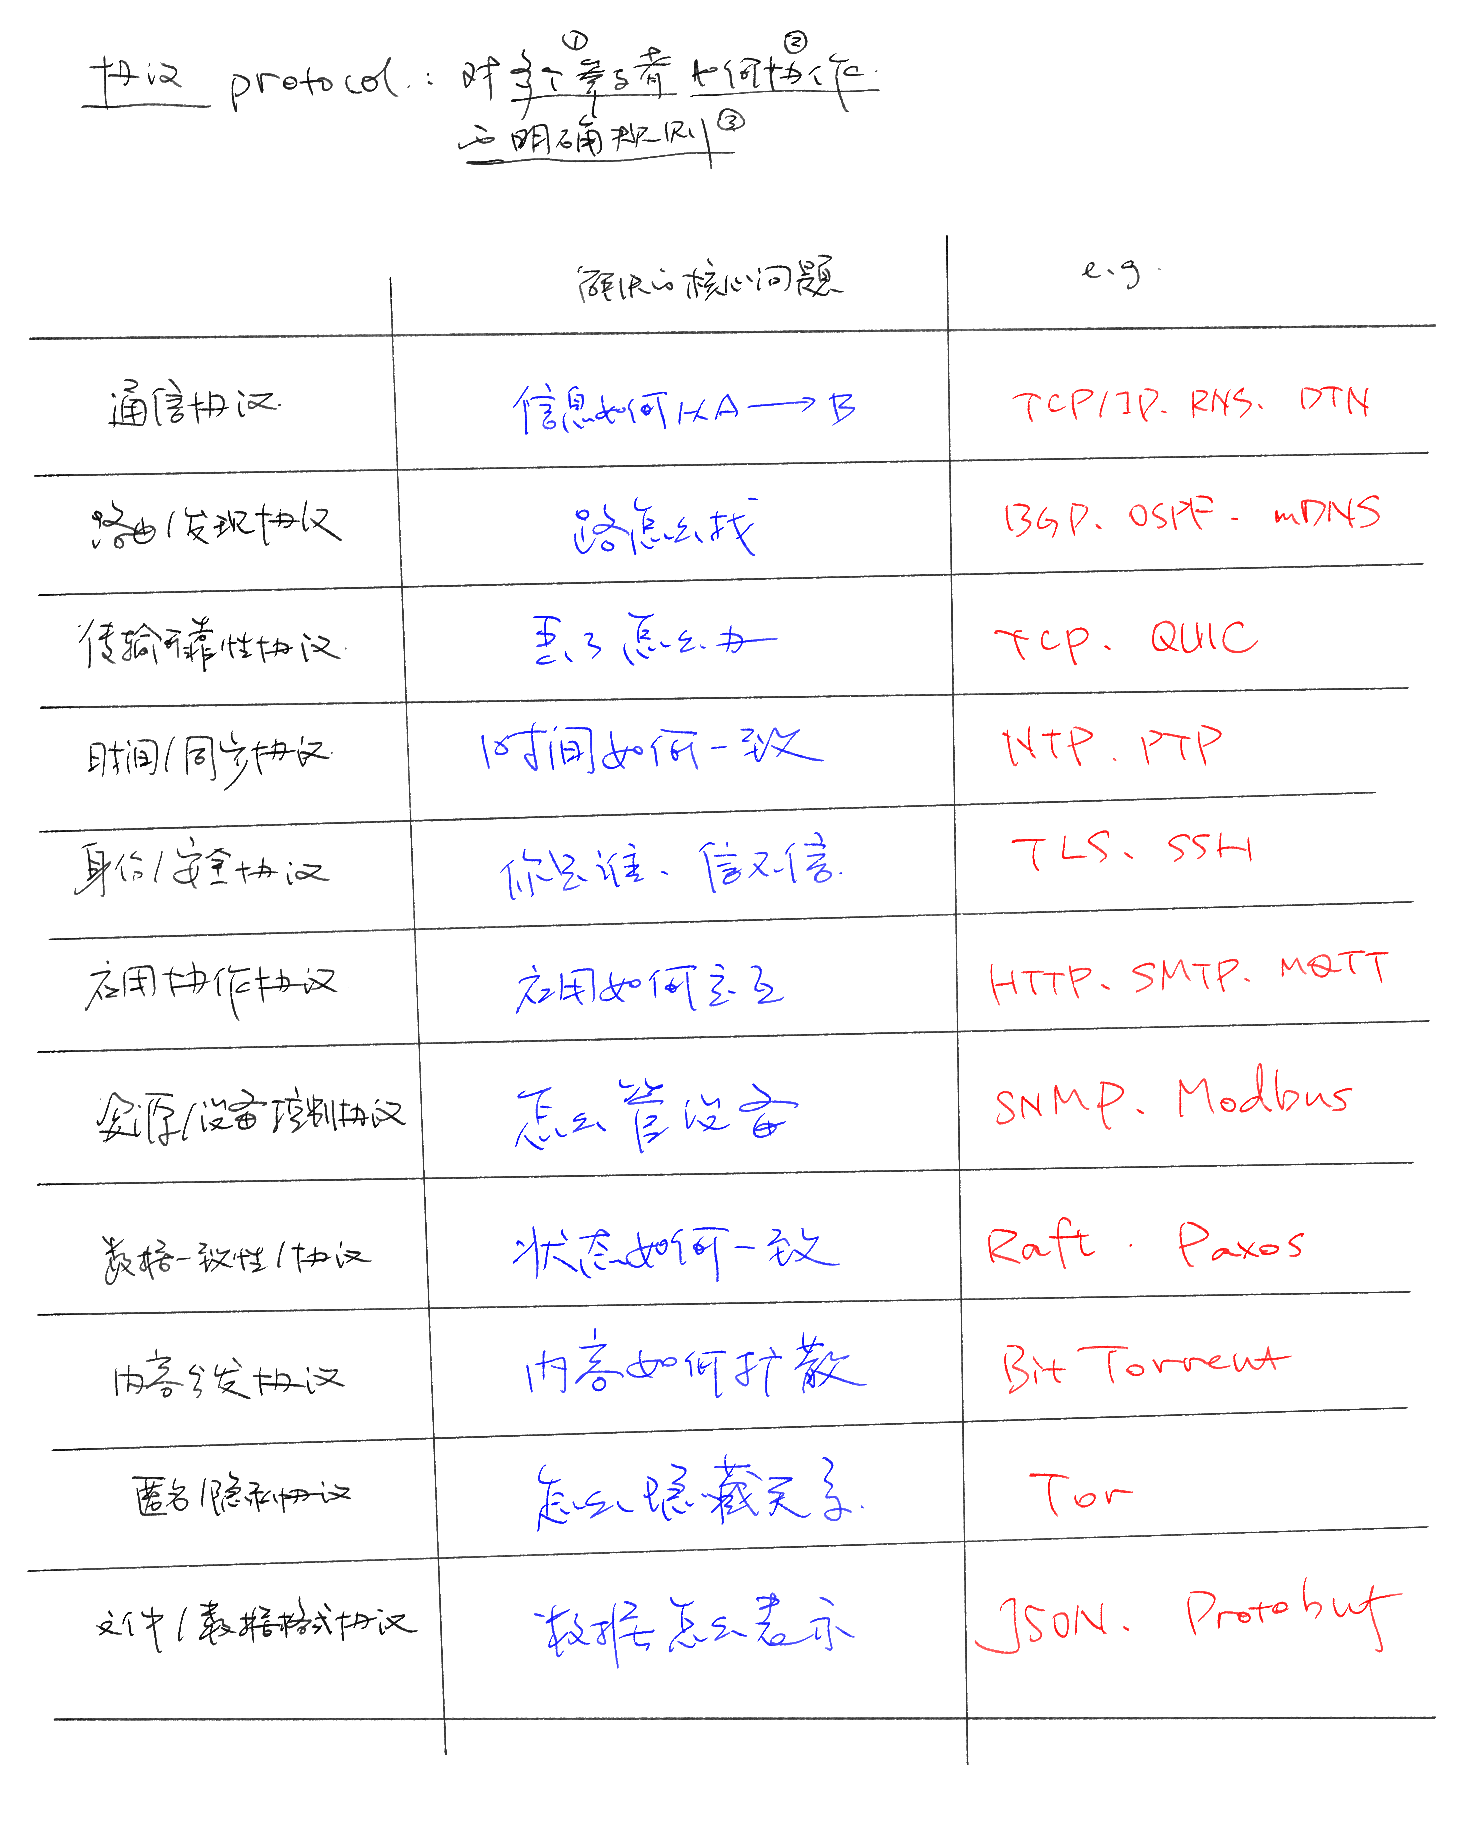 ① ②
协议 protocol: 对多个参与者如何协作
的明确规则③
解决的核心问题 e.g.
通信协议 信息如何从A→B TCP/IP、RNS、DTN
路由/发现协议 路怎么找 BGP、OSPF、mDNS
传输可靠性协议 丢了怎么办 TCP、QUIC
时间/同步协议 时间如何一致 NTP、PTP
身份/安全协议 你是谁、信不信 TLS、SSH
应用协作协议 应用如何交互 HTTP、SMTP、MQTT
资源/设备控制协议 怎么管设备 SNMP、Modbus
数据一致性/协议 状态如何一致 Raft、Paxos
内容分发协议 内容如何扩散 BitTorrent
匿名/隐私协议 怎么隐藏关系 Tor
文件/数据格式协议 数据怎么表示 JSON、Protobuf